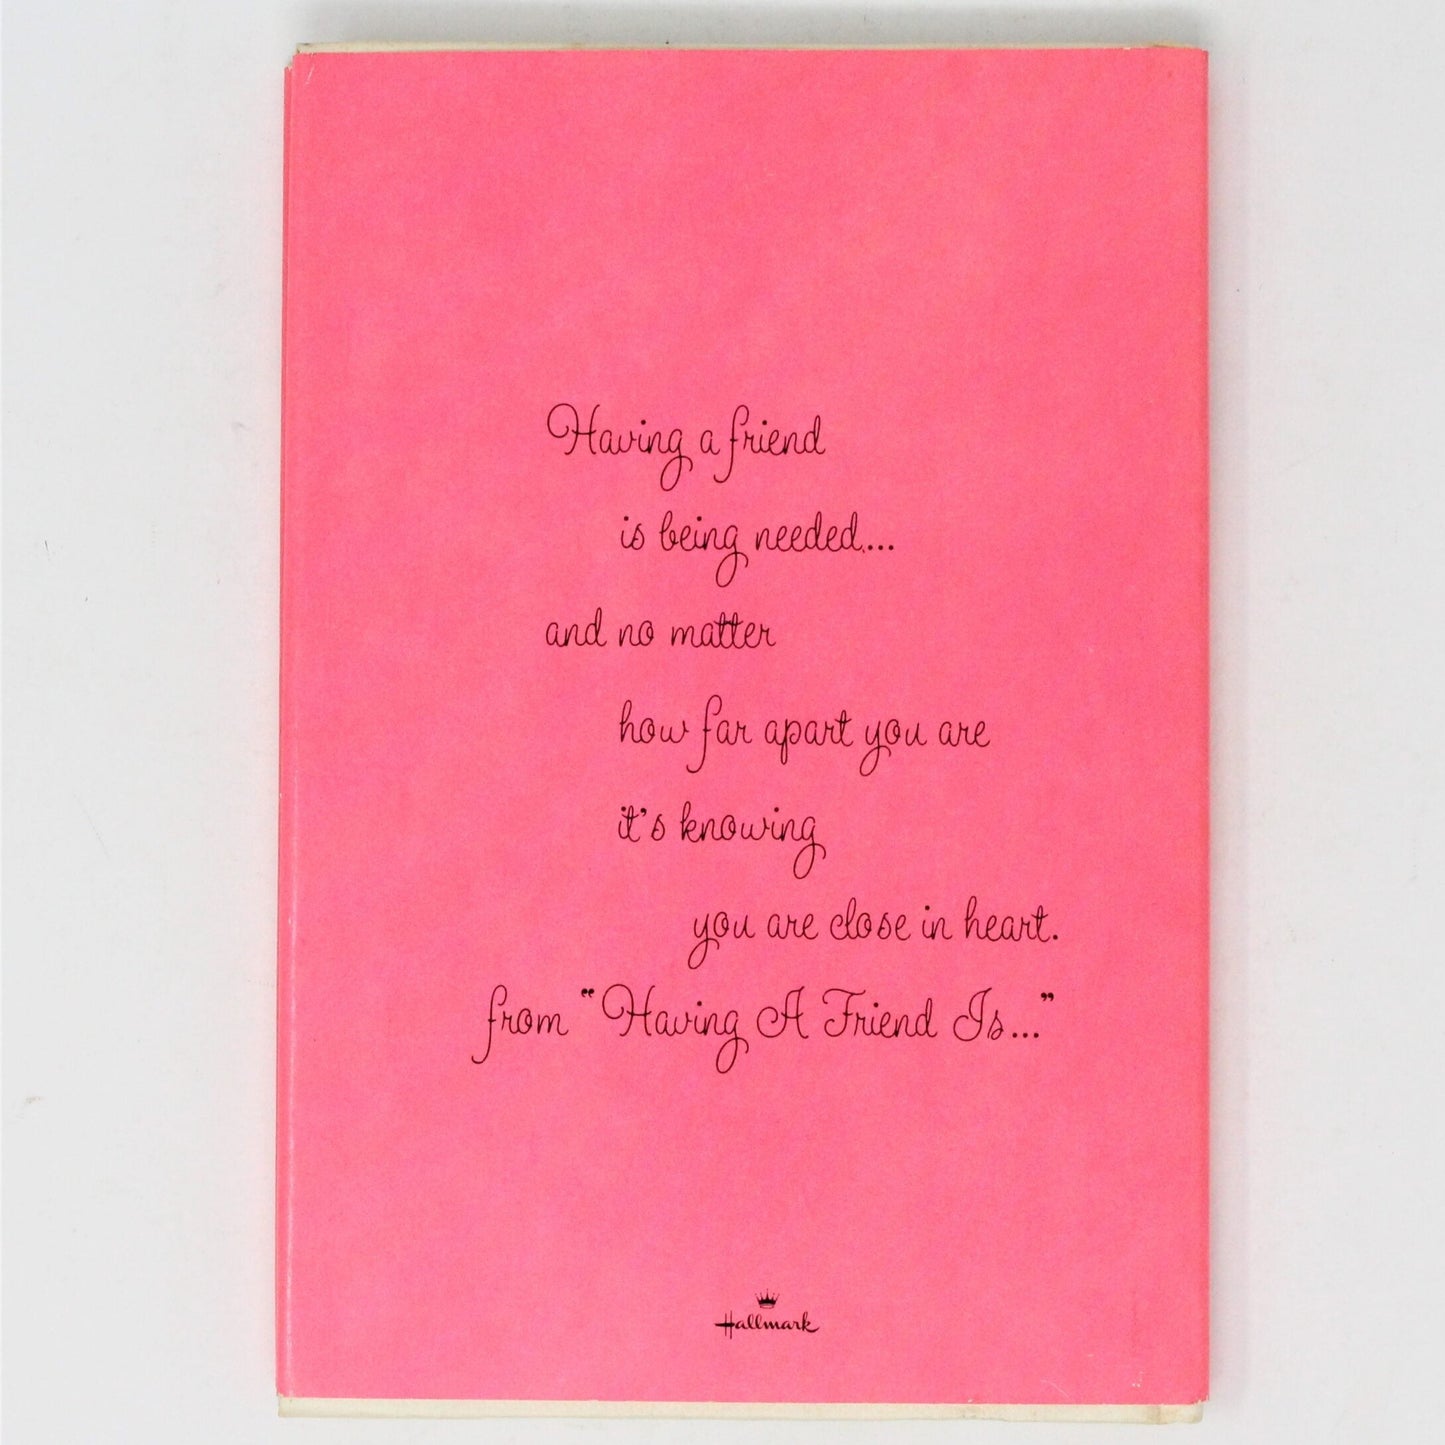 Having a friend
is being needed....
and no matter
how far apart you are
it's knowing
you are close in heart.
from "Having A Friend Is..."
Hallmark